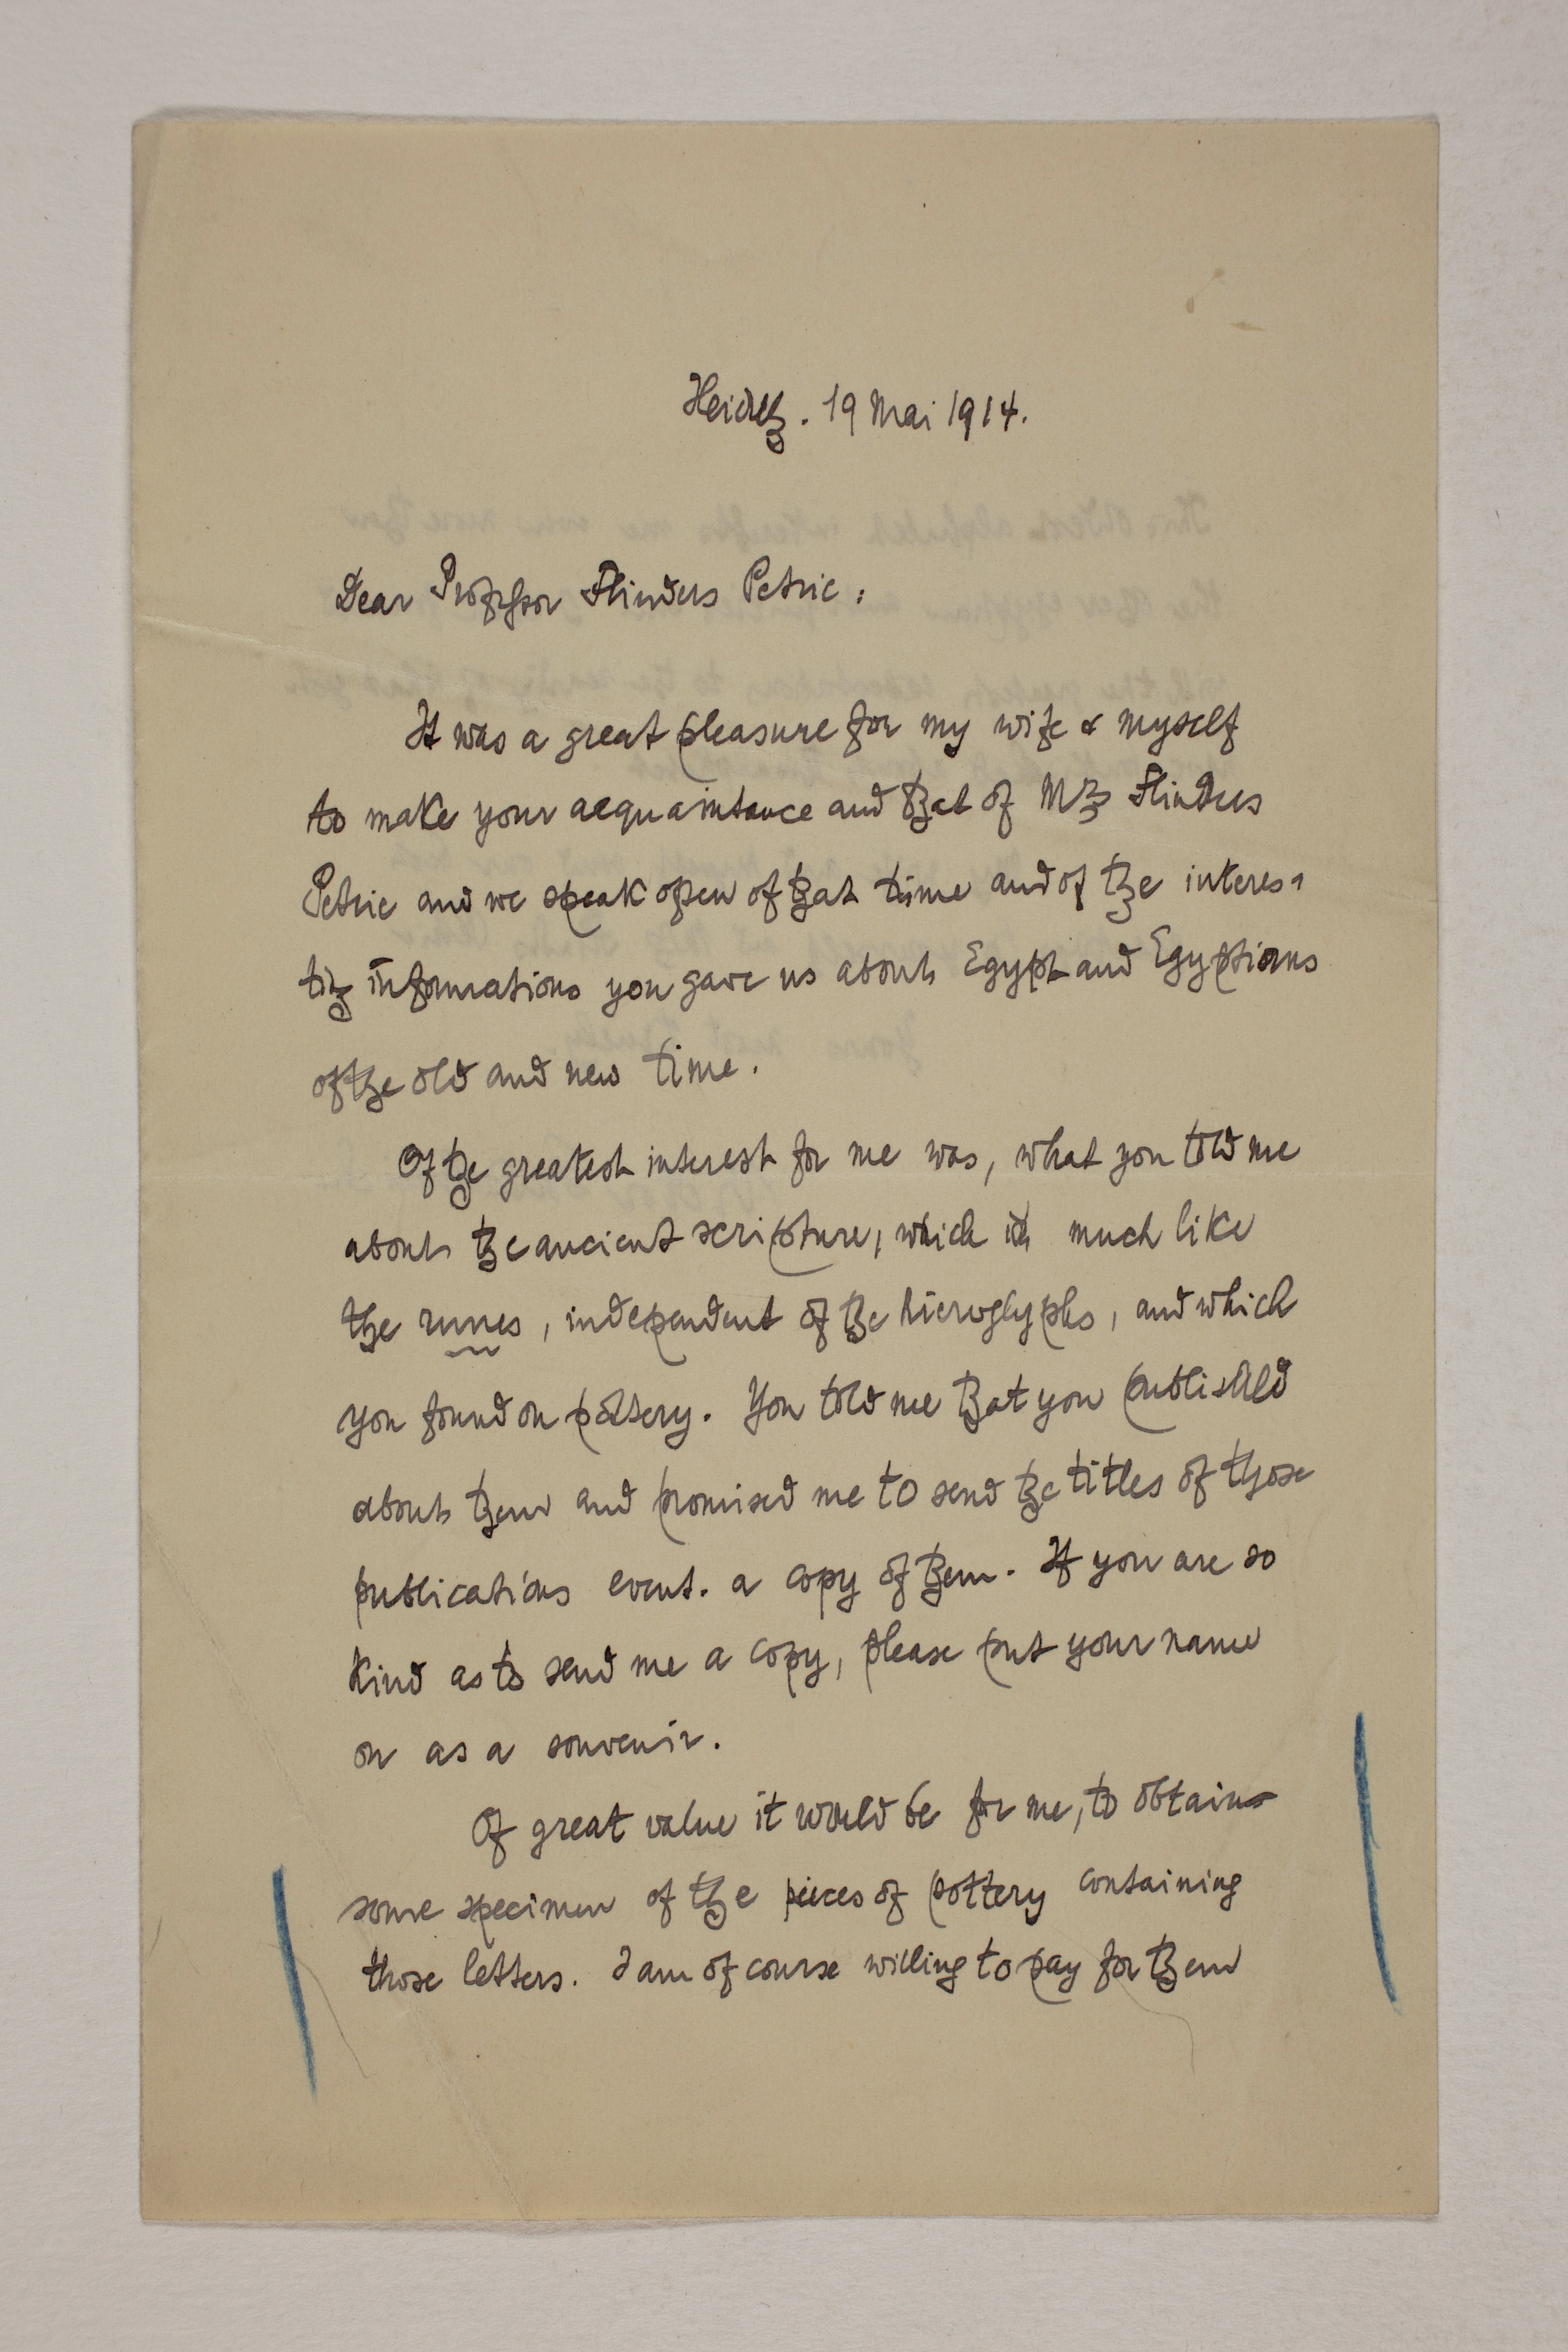 Heidelbg. 19 Mai 1914.
Dear Professor Flinders Petrie:
It was a great pleasure for my wife & myself
to make your acquaintance and that of Mrs Flinders
Petrie and we speak often of that time and of the interes-
ting informations you gave us about Egypt and Egyptians
of the old and new time.
Of the greatest interest for me was, what you told me
about the ancient scripture, which is much like
the runes, independent of the hieroglyphs, and which
you found on pottery. You told me that you published
about them and promised me to send the titles of those
publications event. a copy of them. If you are so
kind as to send me a copy, please put your name
on as a souvenir.
Of great value it would be for me, to obtain
some specimen of the pieces of pottery containing
those letters. I am of course willing to pay for them